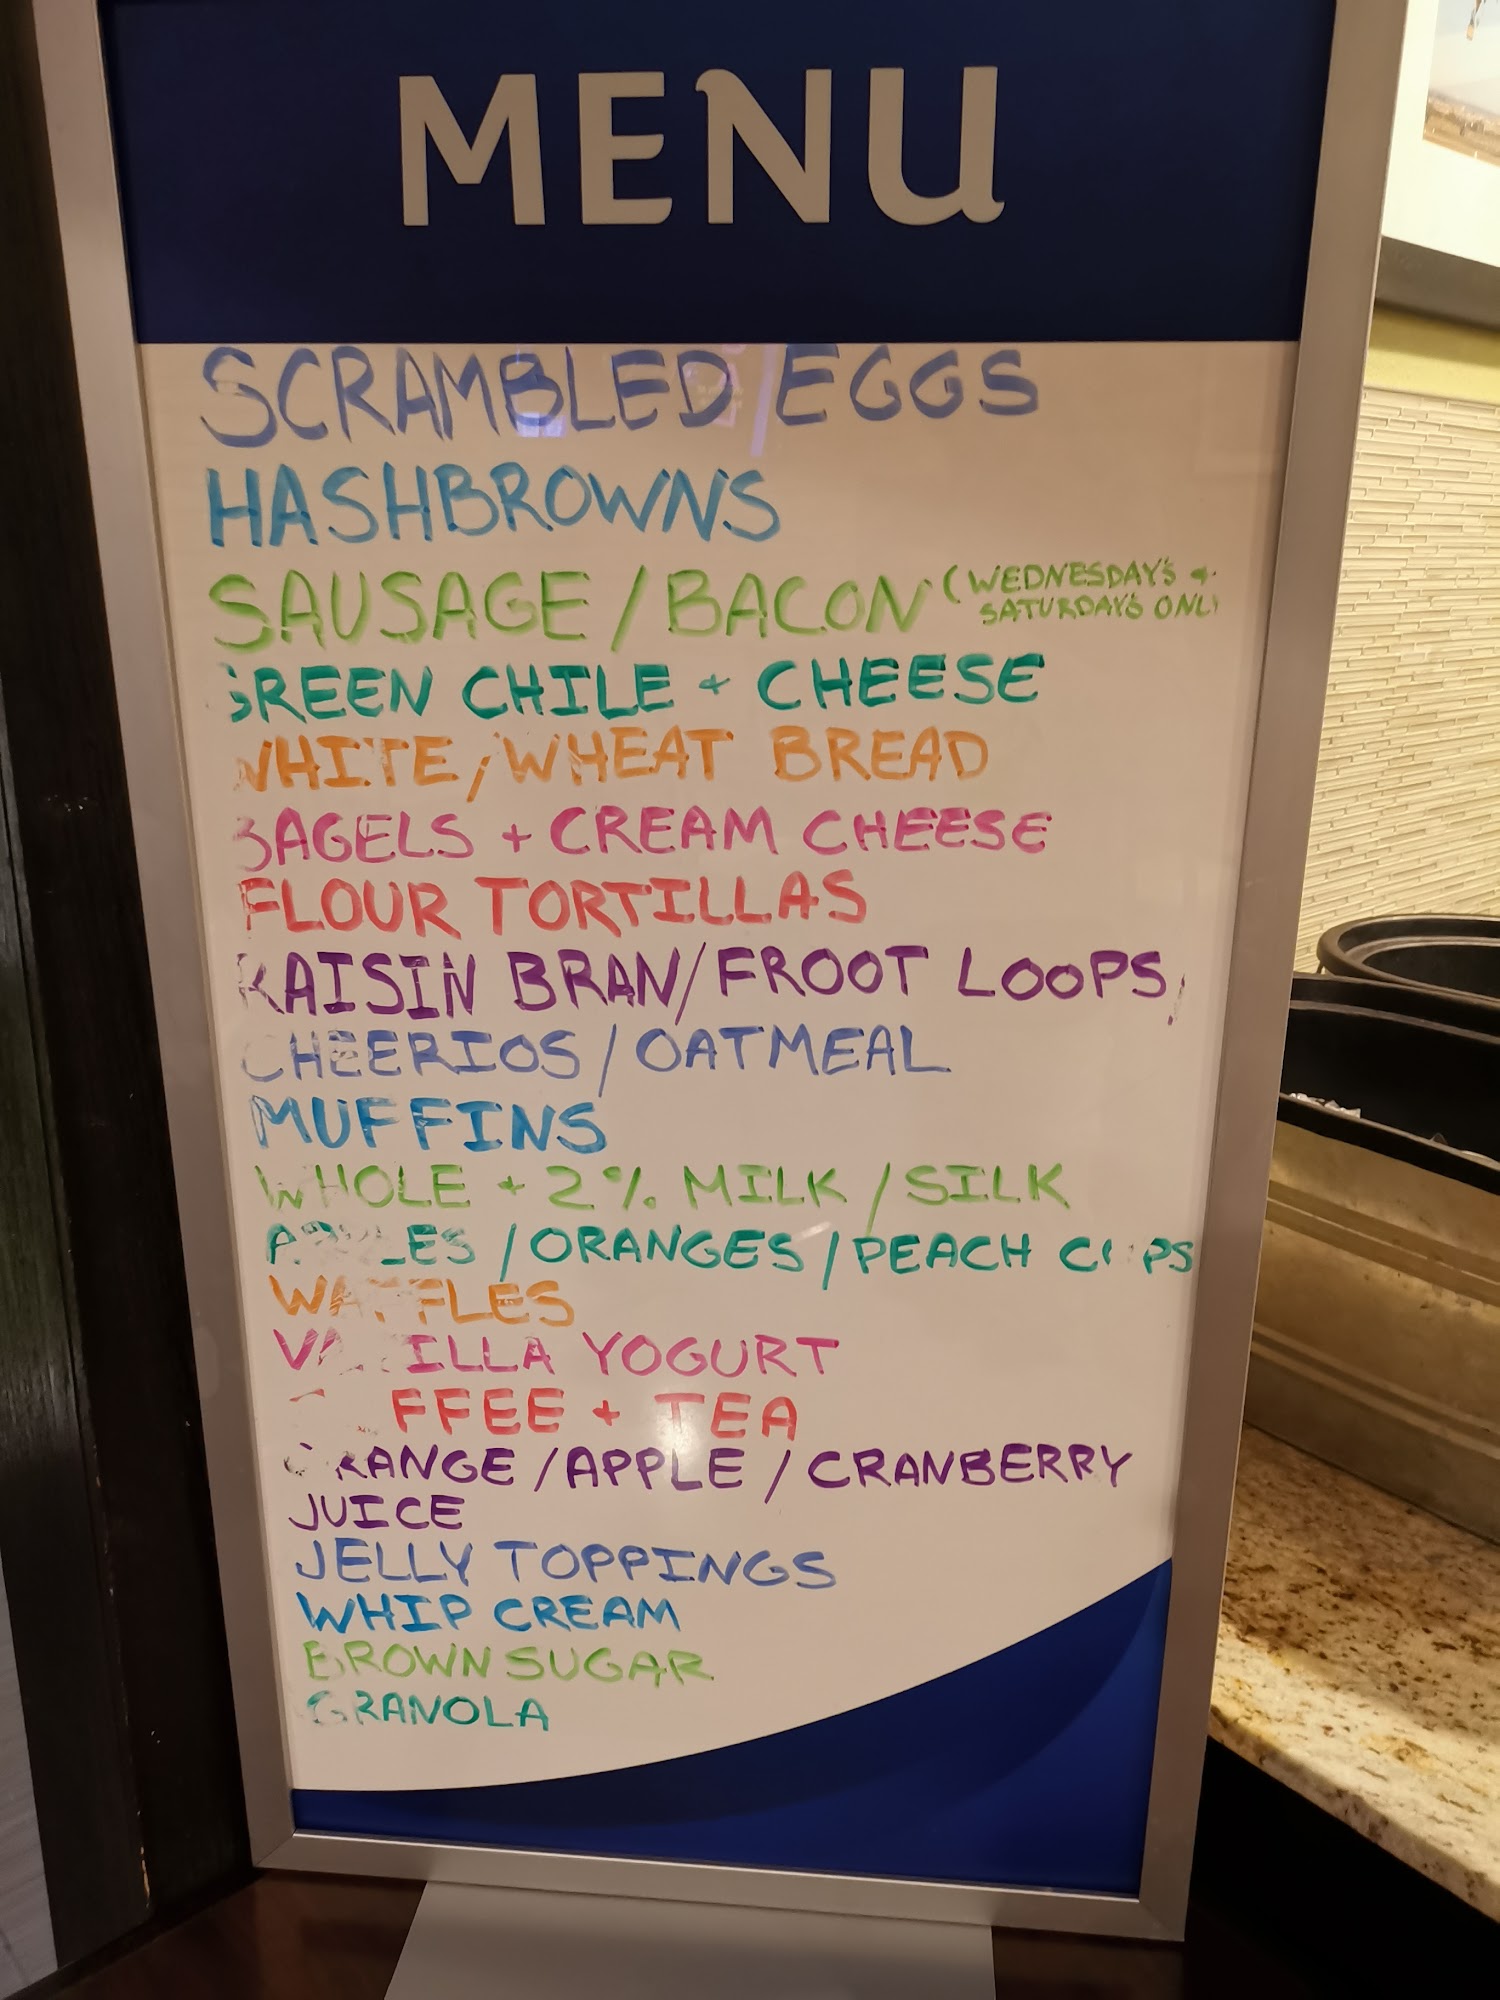 MENU
SCRAMBLED EGGS
HASHBROWNS
SAUSAGE/BACON (WEDNESDAY'S +
SATURDAY'S ONLY
GREEN CHILE + CHEESE
WHITE/WHEAT BREAD
BAGELS + CREAM CHEESE
FLOUR TORTILLAS
RAISIN BRAN/FROOT LOOPS/
CHEERIOS/OATMEAL
MUFFINS
WHOLE + 2% MILK/SILK
APPLES/ORANGES/PEACH CUPS
WAFFLES
VANILLA YOGURT
COFFEE + TEA
ORANGE/APPLE/CRANBERRY
JUICE
JELLY TOPPINGS
WHIP CREAM
BROWN SUGAR
GRANOLA